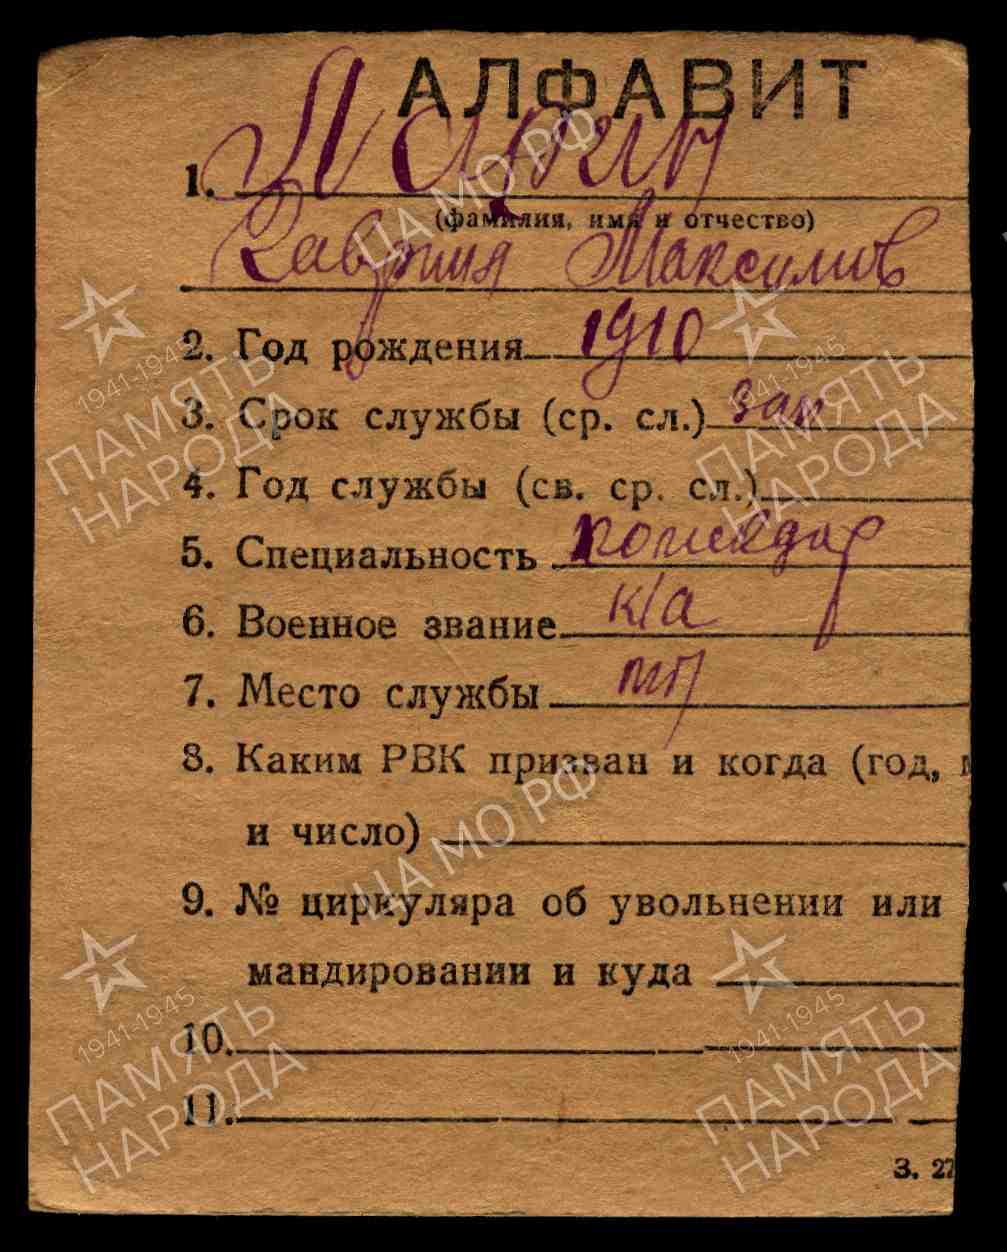 АЛФАВИТ
1.
(фамилия, имя и отчество)
Гавриил Максимов
2. Год рождения 1910
3. Срок службы (ср. сл.) зап
4. Год службы (св. ср. сл.)
5. Специальность
6. Военное звание к/а
7. Место службы
8. Каким РВК призван и когда (год,
и число)
9. № циркуляра об увольнении или
мандировании и куда
10.
11.
З. 27
ЦА МО РФ
1941-1945
ПАМЯТЬ
НАРОДА
1941-1945
ПАМЯТЬ
НАРОДА
ЦА МО РФ
1941-1945
ПАМЯТЬ
НАРОДА
1941-1945
ПАМЯТЬ
НАРОДА